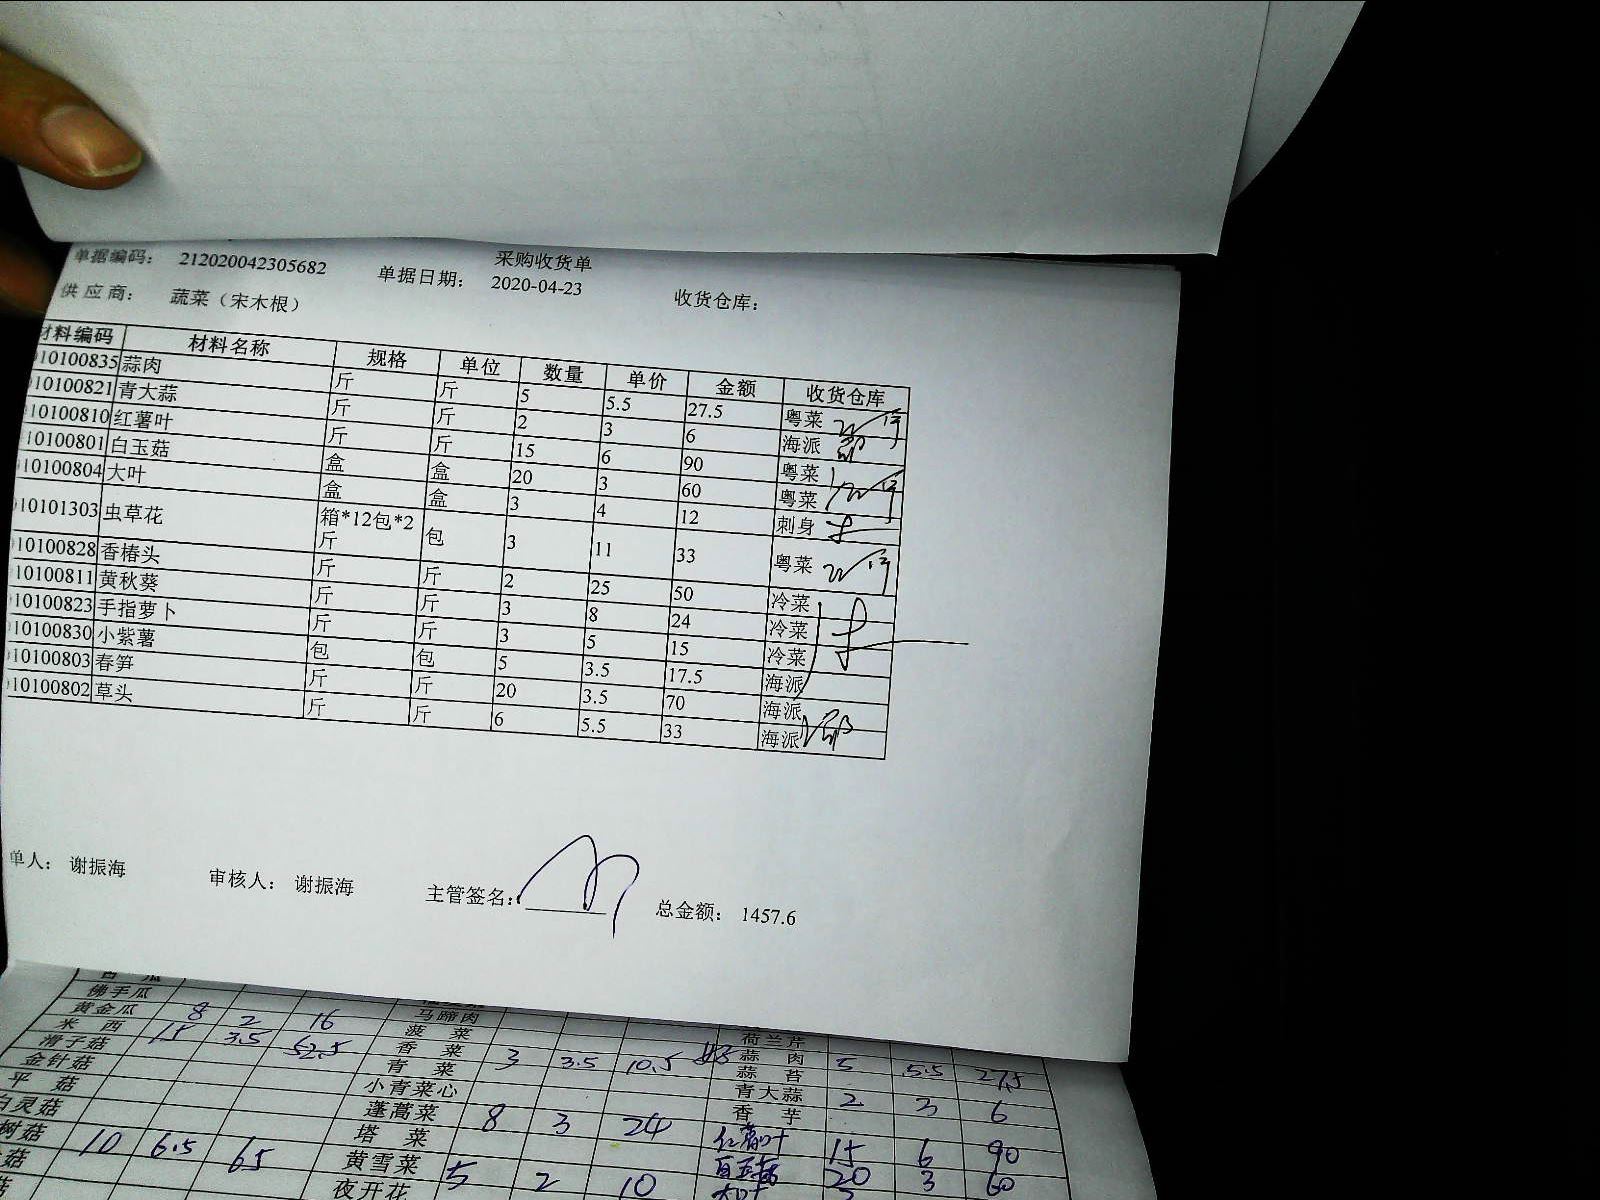 采购收货单
单据编码： 212020042305682 单据日期： 2020-04-23 收货仓库：
供应商： 蔬菜（宋木根）
材料编码 材料名称 规格 单位 数量 单价 金额 收货仓库
10100835 蒜肉 斤 斤 5 5.5 27.5 粤菜
10100821 青大蒜 斤 斤 2 3 6 海派
10100810 红薯叶 斤 斤 15 6 90 粤菜
10100801 白玉菇 盒 盒 20 3 60 粤菜
10100804 大叶 盒 盒 3 4 12 刺身
10101303 虫草花 箱*12包*2斤 包 3 11 33 粤菜
10100828 香椿头 斤 斤 2 25 50 冷菜
10100811 黄秋葵 斤 斤 3 8 24 冷菜
10100823 手指萝卜 斤 斤 3 5 15 冷菜
10100830 小紫薯 包 包 5 3.5 17.5 海派
10100803 春笋 斤 斤 20 3.5 70 海派
10100802 草头 斤 斤 6 5.5 33 海派
单人： 谢振海 审核人： 谢振海 主管签名： 总金额： 1457.6
佛手瓜 马蹄肉 荷兰芹
黄金瓜 8 2 16 菠菜 蒜肉 5 5.5 27.5
米西 15 3.5 52.5 香菜 3 3.5 10.5 蒜苔
滑子菇 青菜 青大蒜 2 3 6
金针菇 小青菜心 香芋
平菇 蓬蒿菜 8 3 24 红薯叶 15 6 90
白灵菇 塔菜 白玉菇 20 3 60
树菇 10 6.5 65 黄雪菜 5 2 10
菇 夜开花